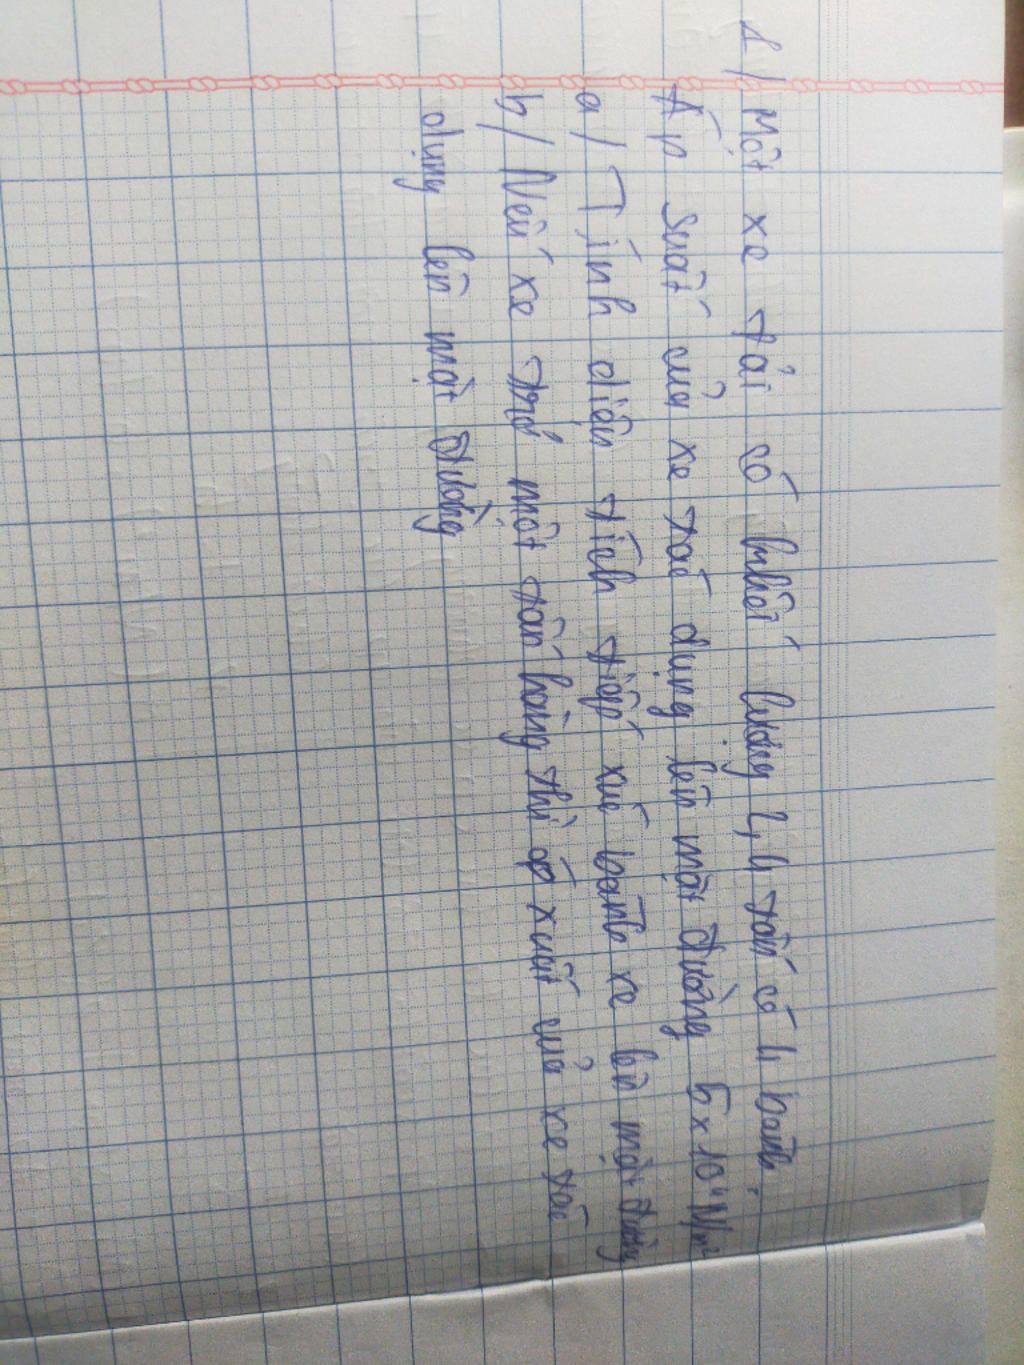 1/ Một xe tải có khối lượng 2,4 tấn có 4 bánh.
Áp suất của xe tác dụng lên mặt đường 5x10⁴ N/m²
a/ Tính diện tích tiếp xúc bánh xe lên mặt đường
b/ Nếu xe chở một tấn hàng thì áp xuất của xe tác
dụng lên mặt đường